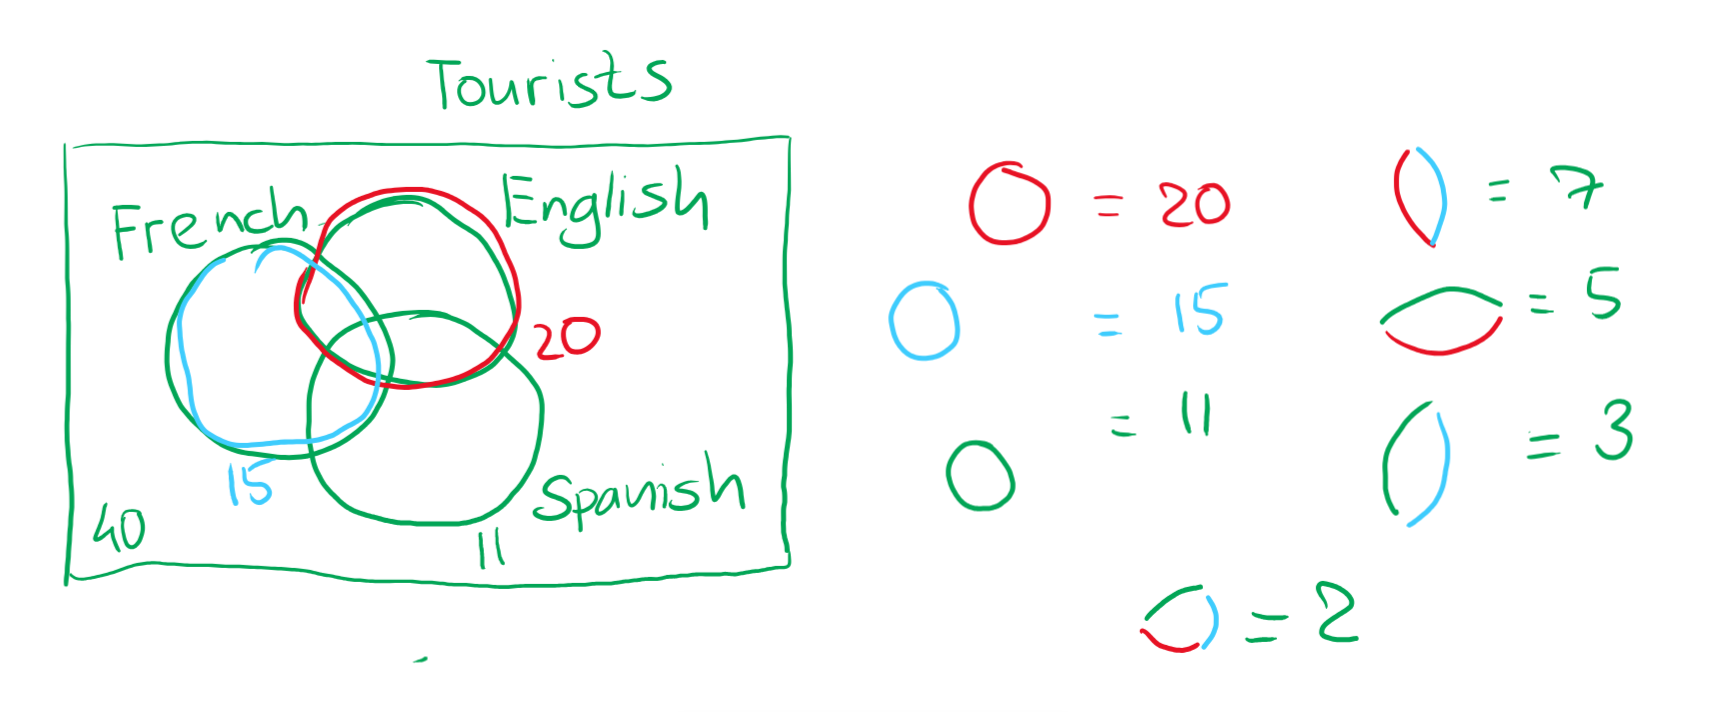 Tourists
French
English
20
15
40
Spanish
11
= 20
= 15
= 11
= 7
= 5
= 3
= 2